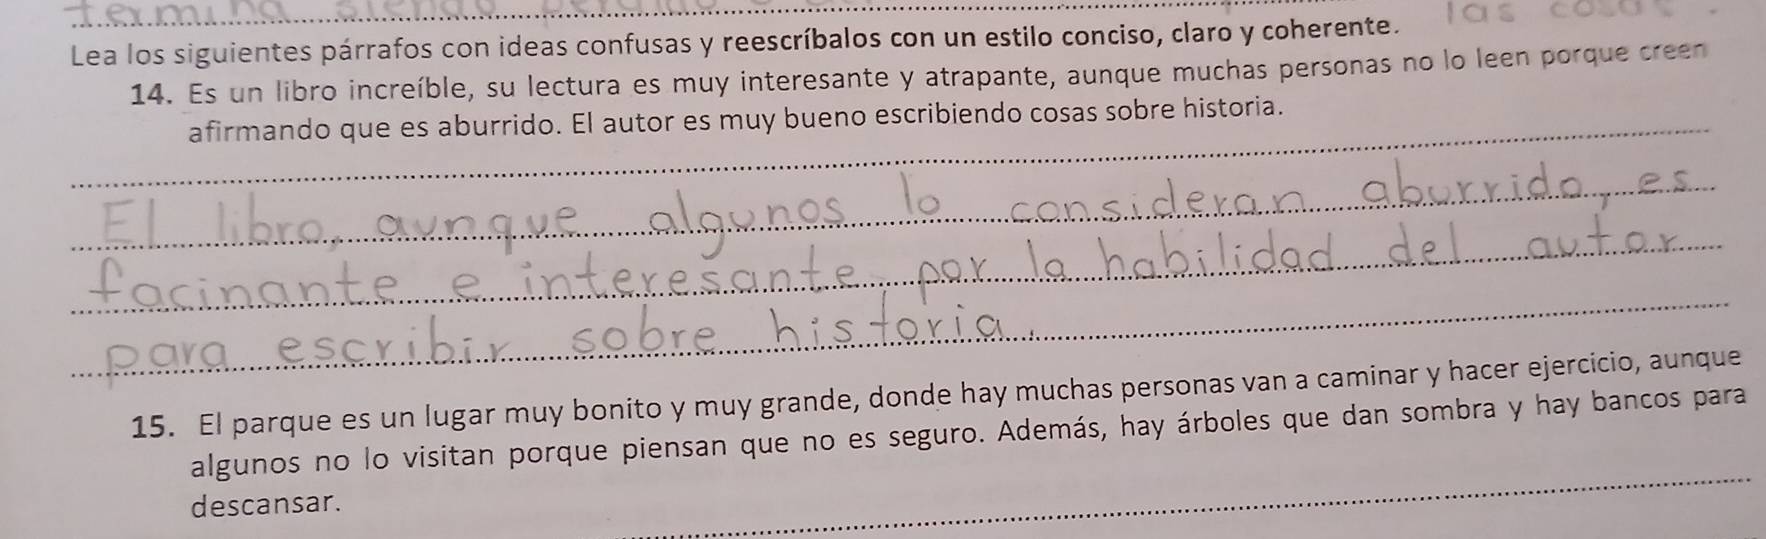 termina siendo
las cosas.
Lea los siguientes párrafos con ideas confusas y reescríbalos con un estilo conciso, claro y coherente.
14. Es un libro increíble, su lectura es muy interesante y atrapante, aunque muchas personas no lo leen porque creen
afirmando que es aburrido. El autor es muy bueno escribiendo cosas sobre historia.
El libro, aunque algunos lo consideran aburrido, es
facinante e interesante, por la habilidad del autor
para escribir sobre historia.
15. El parque es un lugar muy bonito y muy grande, donde hay muchas personas van a caminar y hacer ejercicio, aunque
algunos no lo visitan porque piensan que no es seguro. Además, hay árboles que dan sombra y hay bancos para
descansar.